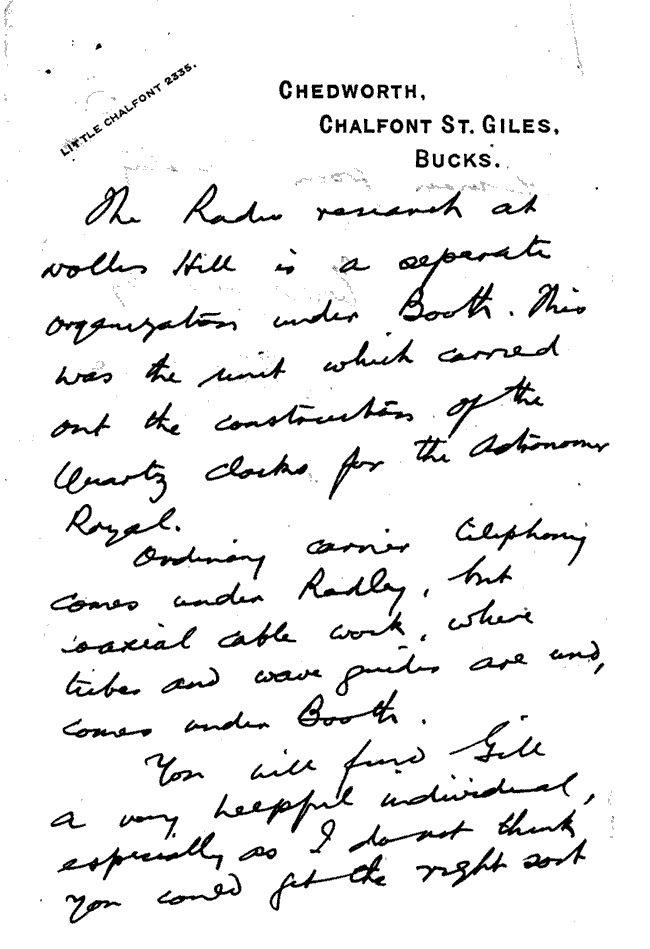 LITTLE CHALFONT 2335.
CHEDWORTH,
CHALFONT ST. GILES,
BUCKS.
The Radio research at
Dollis Hill is a separate
organization under Booth. This
was the unit which carried
out the construction of the
Quartz clocks for the Astronomer
Royal.
Ordinary carrier telephony
comes under Radley, but
coaxial cable work, where
tubes and wave guides are used,
comes under Booth.
You will find Gill
a very helpful individual,
especially as I do not think
you could get the right sort